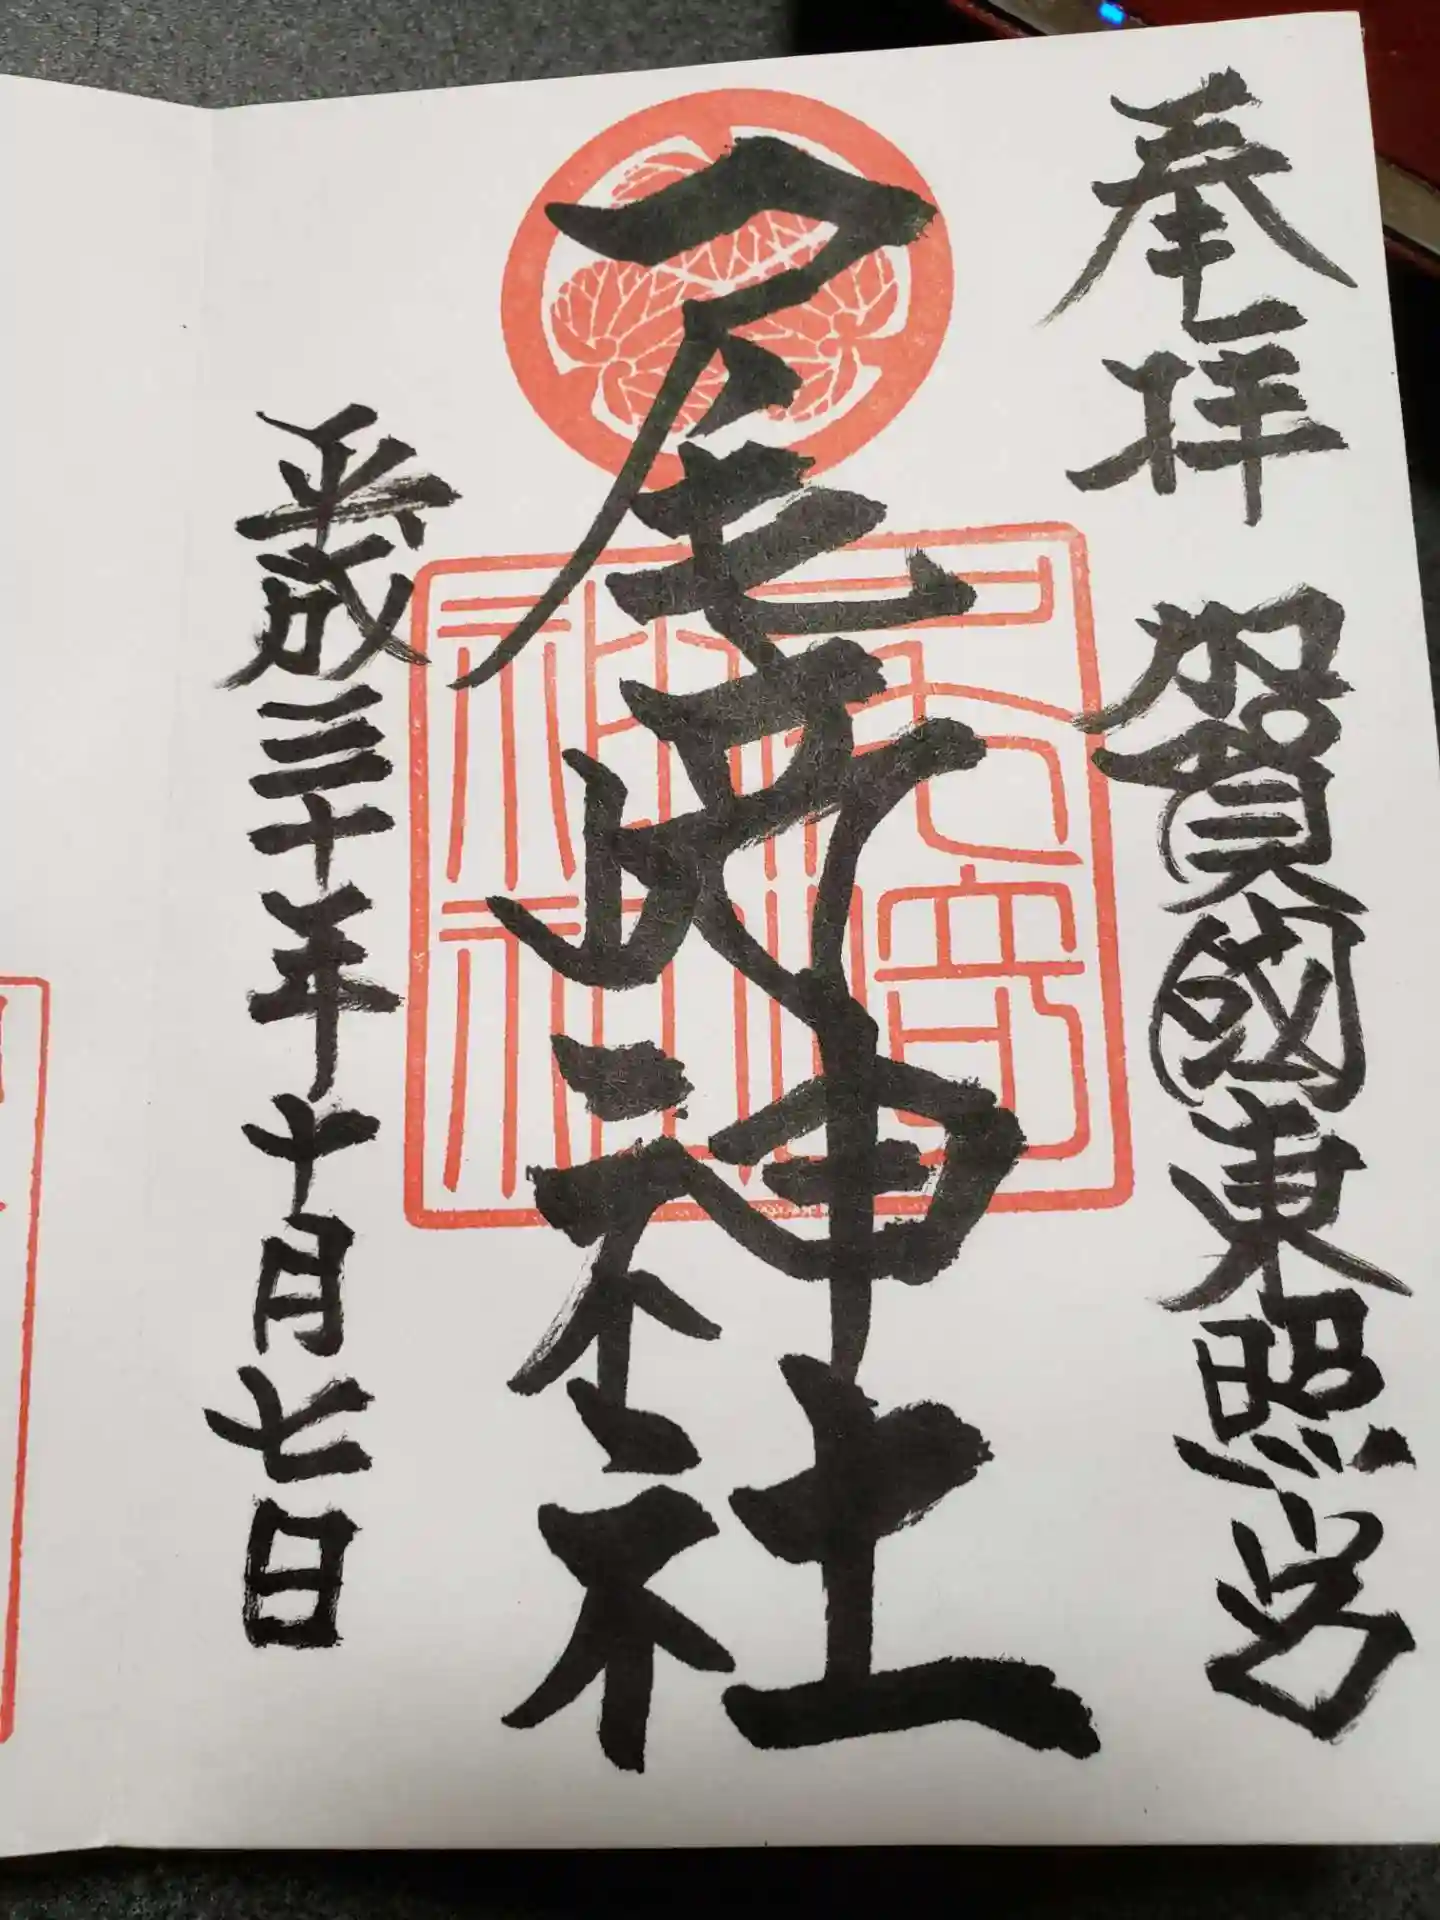 奉拝 加賀國東照宮
尾崎神社
平成三十年十月七日